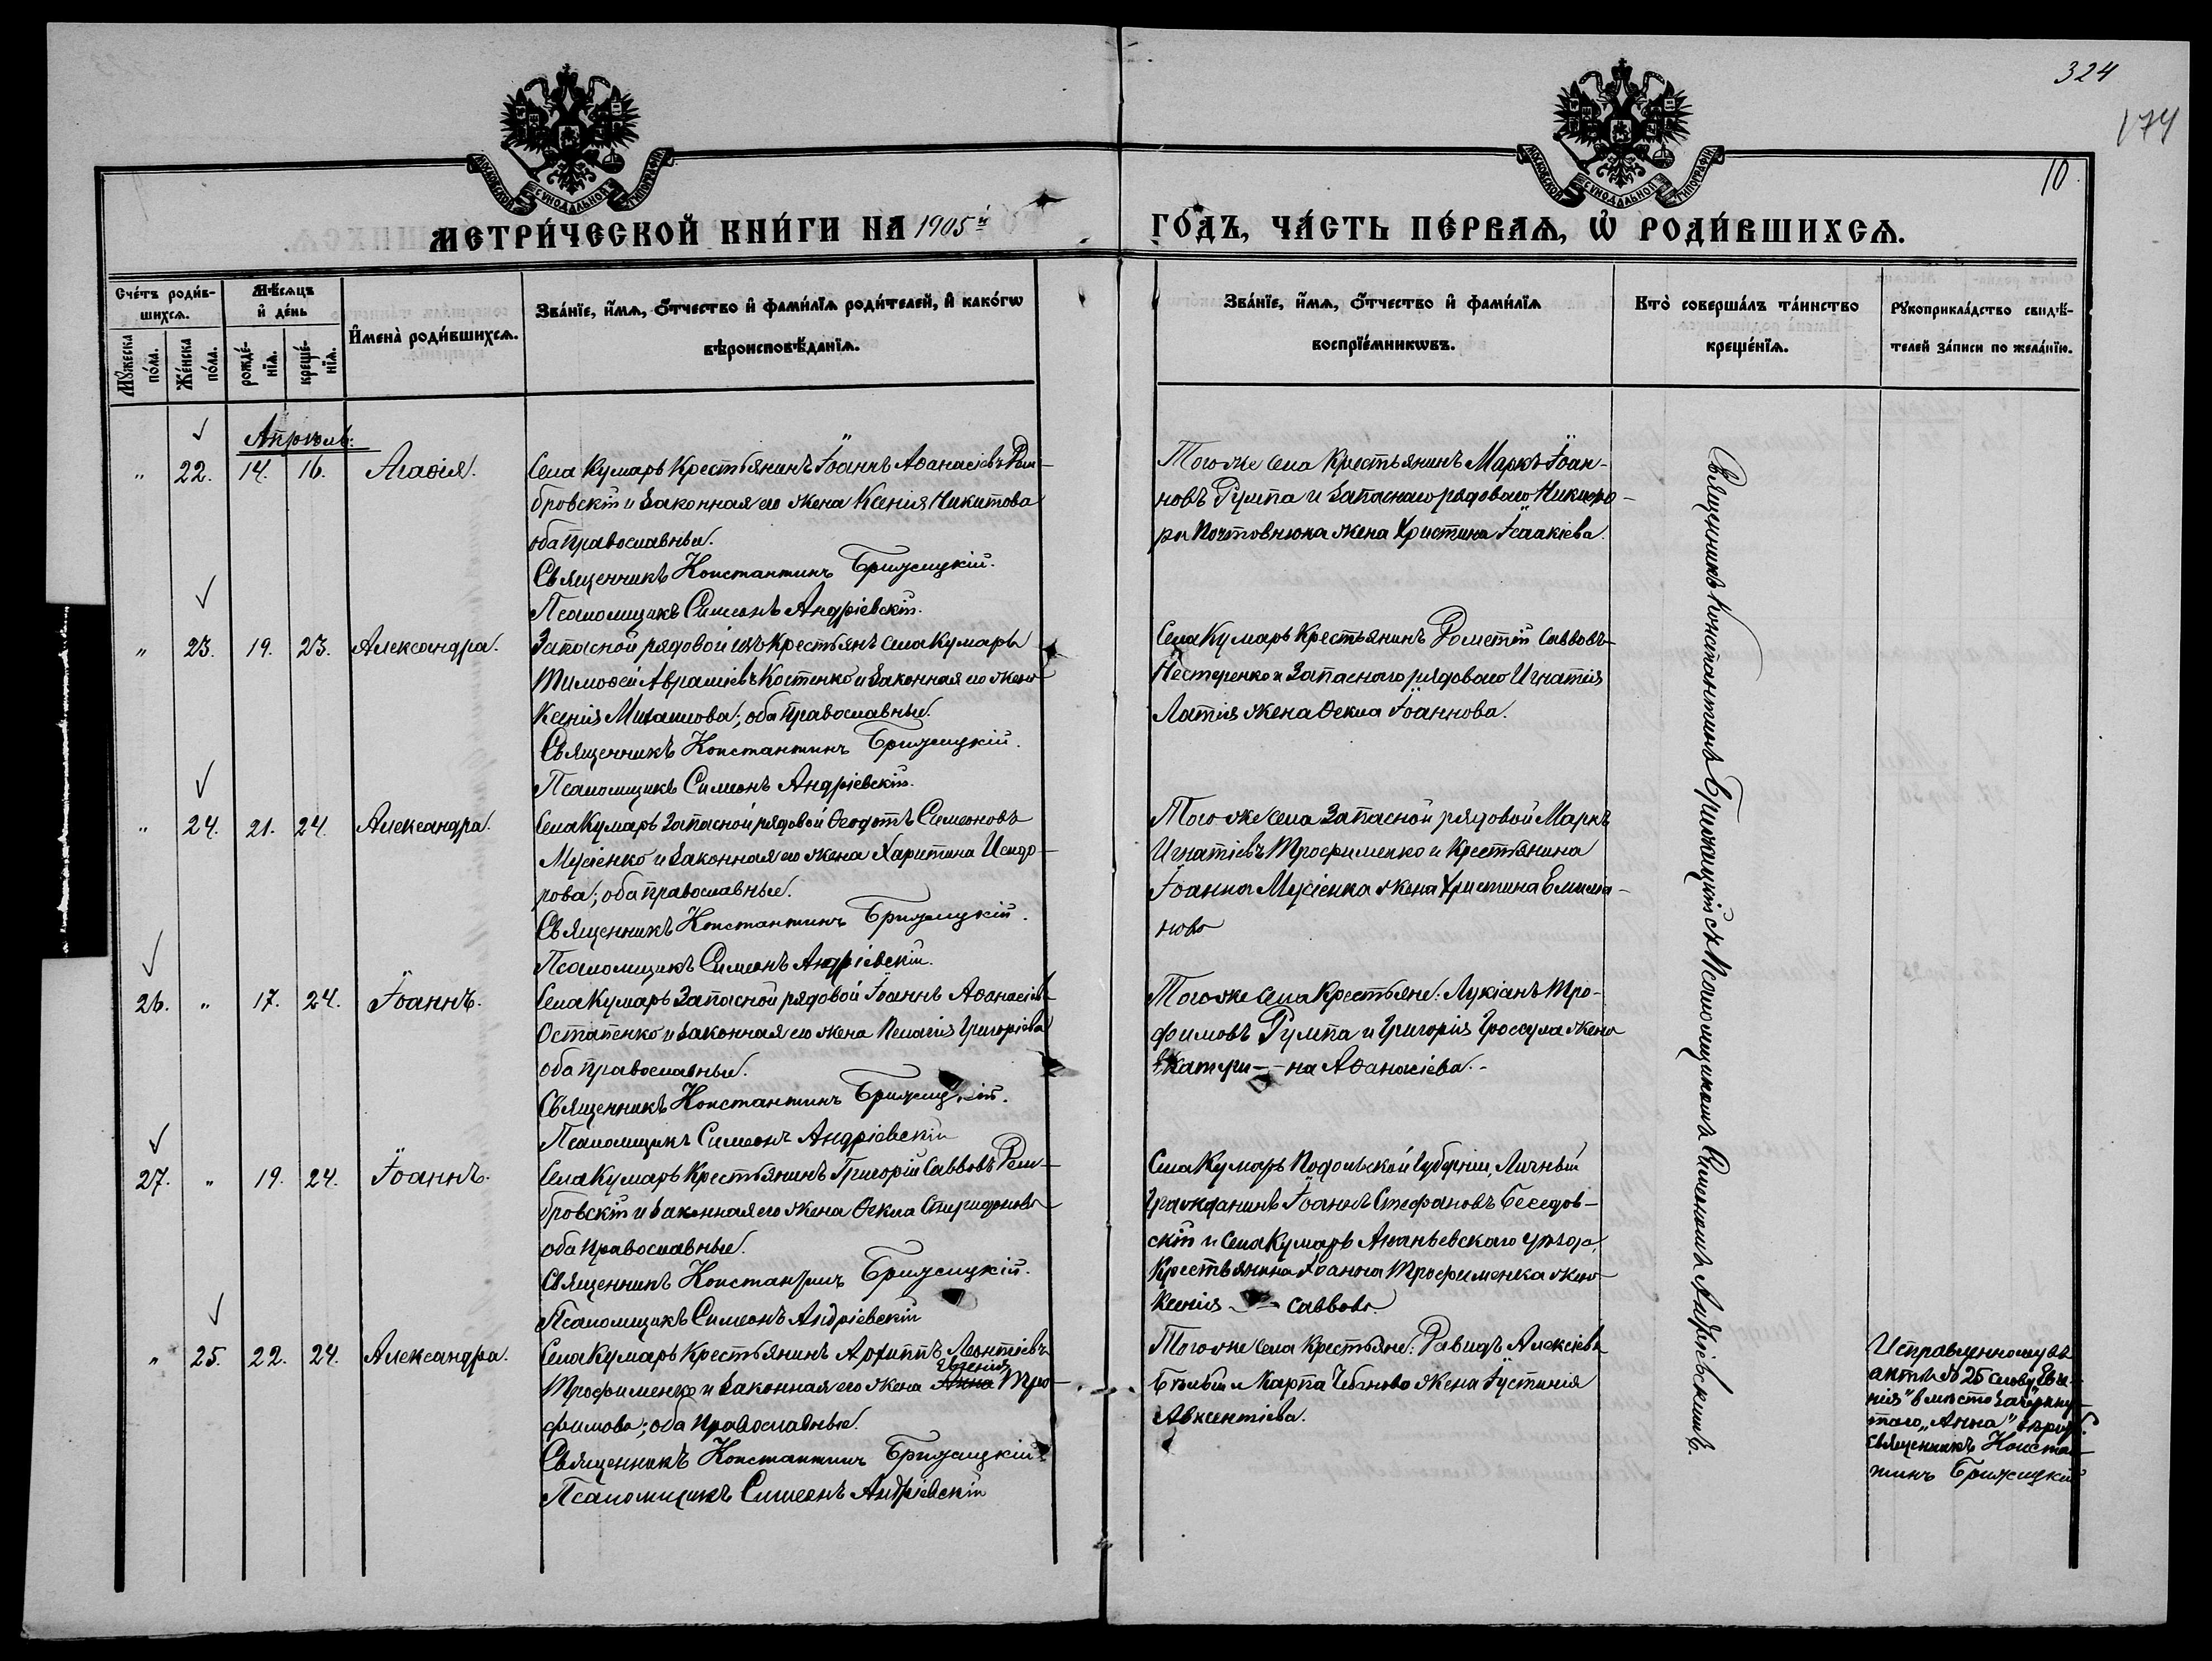 324
174
10
МОСКОВСКОЙ СѴНОДАЛЬНОЙ ТИПОГРАФІИ
МОСКОВСКОЙ СѴНОДАЛЬНОЙ ТИПОГРАФІИ
МЕТРИ́ЧЕСКОЙ КНИ́ГИ НА 1905й ГО́ДЪ, ЧА́СТЬ ПЕ́РВАѦ, Ѡ҆ РОДИ́ВШИХСѦ.
Сче́тъ роди́в-
шихсѧ.
Мѣ́сѧцъ
и҆ де́нь
Мꙋ́жеска по́ла.
Же́нска по́ла.
рожде́-
нїѧ.
креще́-
нїѧ.
И҆мена̀ роди́вшихсѧ.
Зва́нїе, и҆́мѧ, ѻ҆́тчество и҆ фами́лїѧ роди́телей, и҆ како́гѡ
вѣроисповѣ́данїѧ.
Зва́нїе, и҆́мѧ, ѻ҆́тчество и҆ фами́лїѧ
воспрїе́мникѡвъ.
Кто̀ соверша́лъ та́инство
креще́нїѧ.
Рꙋкоприкла́дство свидѣ́-
телей за́писи по жела́нїю.
Апрѣль:
" 22. 14. 16. Агаѳія.
Села Кумаръ Крестьянинъ Іоаннъ Аѳанасіевъ Дом-
бровскій и законная его жена Ксенія Никитова
оба православные.
Священникъ Константинъ Брижицкій.
Псаломщикъ Симеонъ Андріевскій.
Того же села Крестьянинъ Маркъ Іоан-
новъ Гумпа и запаснаго рядоваго Никифо-
ра Почтовнюка жена Христина Исаакіева.
" 23. 19. 23. Александра.
Запасной рядовой изъ крестьянъ села Кумаръ
Тимоѳей Авраміевъ Костенко и законная его жена
Ксенія Михаилова; оба православные.
Священникъ Константинъ Брижицкій.
Псаломщикъ Симеонъ Андріевскій.
Села Кумаръ Крестьянинъ Дометій Саввовъ
Нестеренко и Запасного рядоваго Игнатія
Латія жена Ѳекла Іоаннова.
" 24. 21. 24. Александра.
Села Кумаръ Запасной рядовой Ѳеодотъ Симеоновъ
Мусіенко и законная его жена Харитина Исидо-
рова; оба православные.
Священникъ Константинъ Брижицкій.
Псаломщикъ Симеонъ Андріевскій.
Того же села Запасной рядовой Маркъ
Игнатіевъ Трофименко и Крестьянина
Іоанна Мусіенка жена Христина Емилiа-
нова
26. " 17. 24. Іоаннъ.
Села Кумаръ Запасной рядовой Іоаннъ Аѳанасіевъ
Остапенко и законная его жена Пелагія Григоріева
оба православные.
Священникъ Константинъ Брижицкій.
Псаломщикъ Симеонъ Андріевскій
Того же села Крестьяне: Лукіанъ Тро-
фимовъ Гумпа и Григорія Гроссула жена
Екатери- -на Аѳанасіева.-
27. " 19. 24. Іоаннъ.
Села Кумаръ Крестьянинъ Григорій Саввовъ Дом-
бровскій и законная его жена Ѳекла Спиридонова
оба православные.
Священникъ Константинъ Брижицкій.
Псаломщикъ Симеонъ Андріевскій
Села Кумаръ Подольской губерніи, Личный
гражданинъ Іоаннъ Стефановъ Беседов-
скій и села Кумаръ Ананьевскаго уѣзда,
Крестьянина Іоанна Трофименка жена
Ксенія - - Саввова.
" 25. 22. 24. Александра.
Села Кумаръ Крестьянинъ Архиппъ Леонтіевъ
Евгенія
Трофименко и законная его жена Анна Тро-
фимова; оба православные.
Священникъ Константинъ Брижицкій
Псаломщикъ Симеонъ Андріевскій
Того же села Крестьяне: Давидъ Алексіевъ
и Карпа Чебанова жена Іустинія
Авксентіева.
Священникъ Константинъ Брижицкій съ Псаломщикомъ Симеономъ Андріевскимъ.
Исправленному въ
актѣ № 25 слову „Евге-
нія" вмѣсто зачеркну-
таго „Анна" вѣрить.
Священникъ Констан-
тинъ Брижицкій